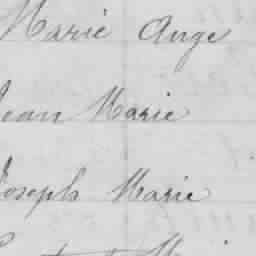 Marie Ange
Jean Marie
Joseph Marie